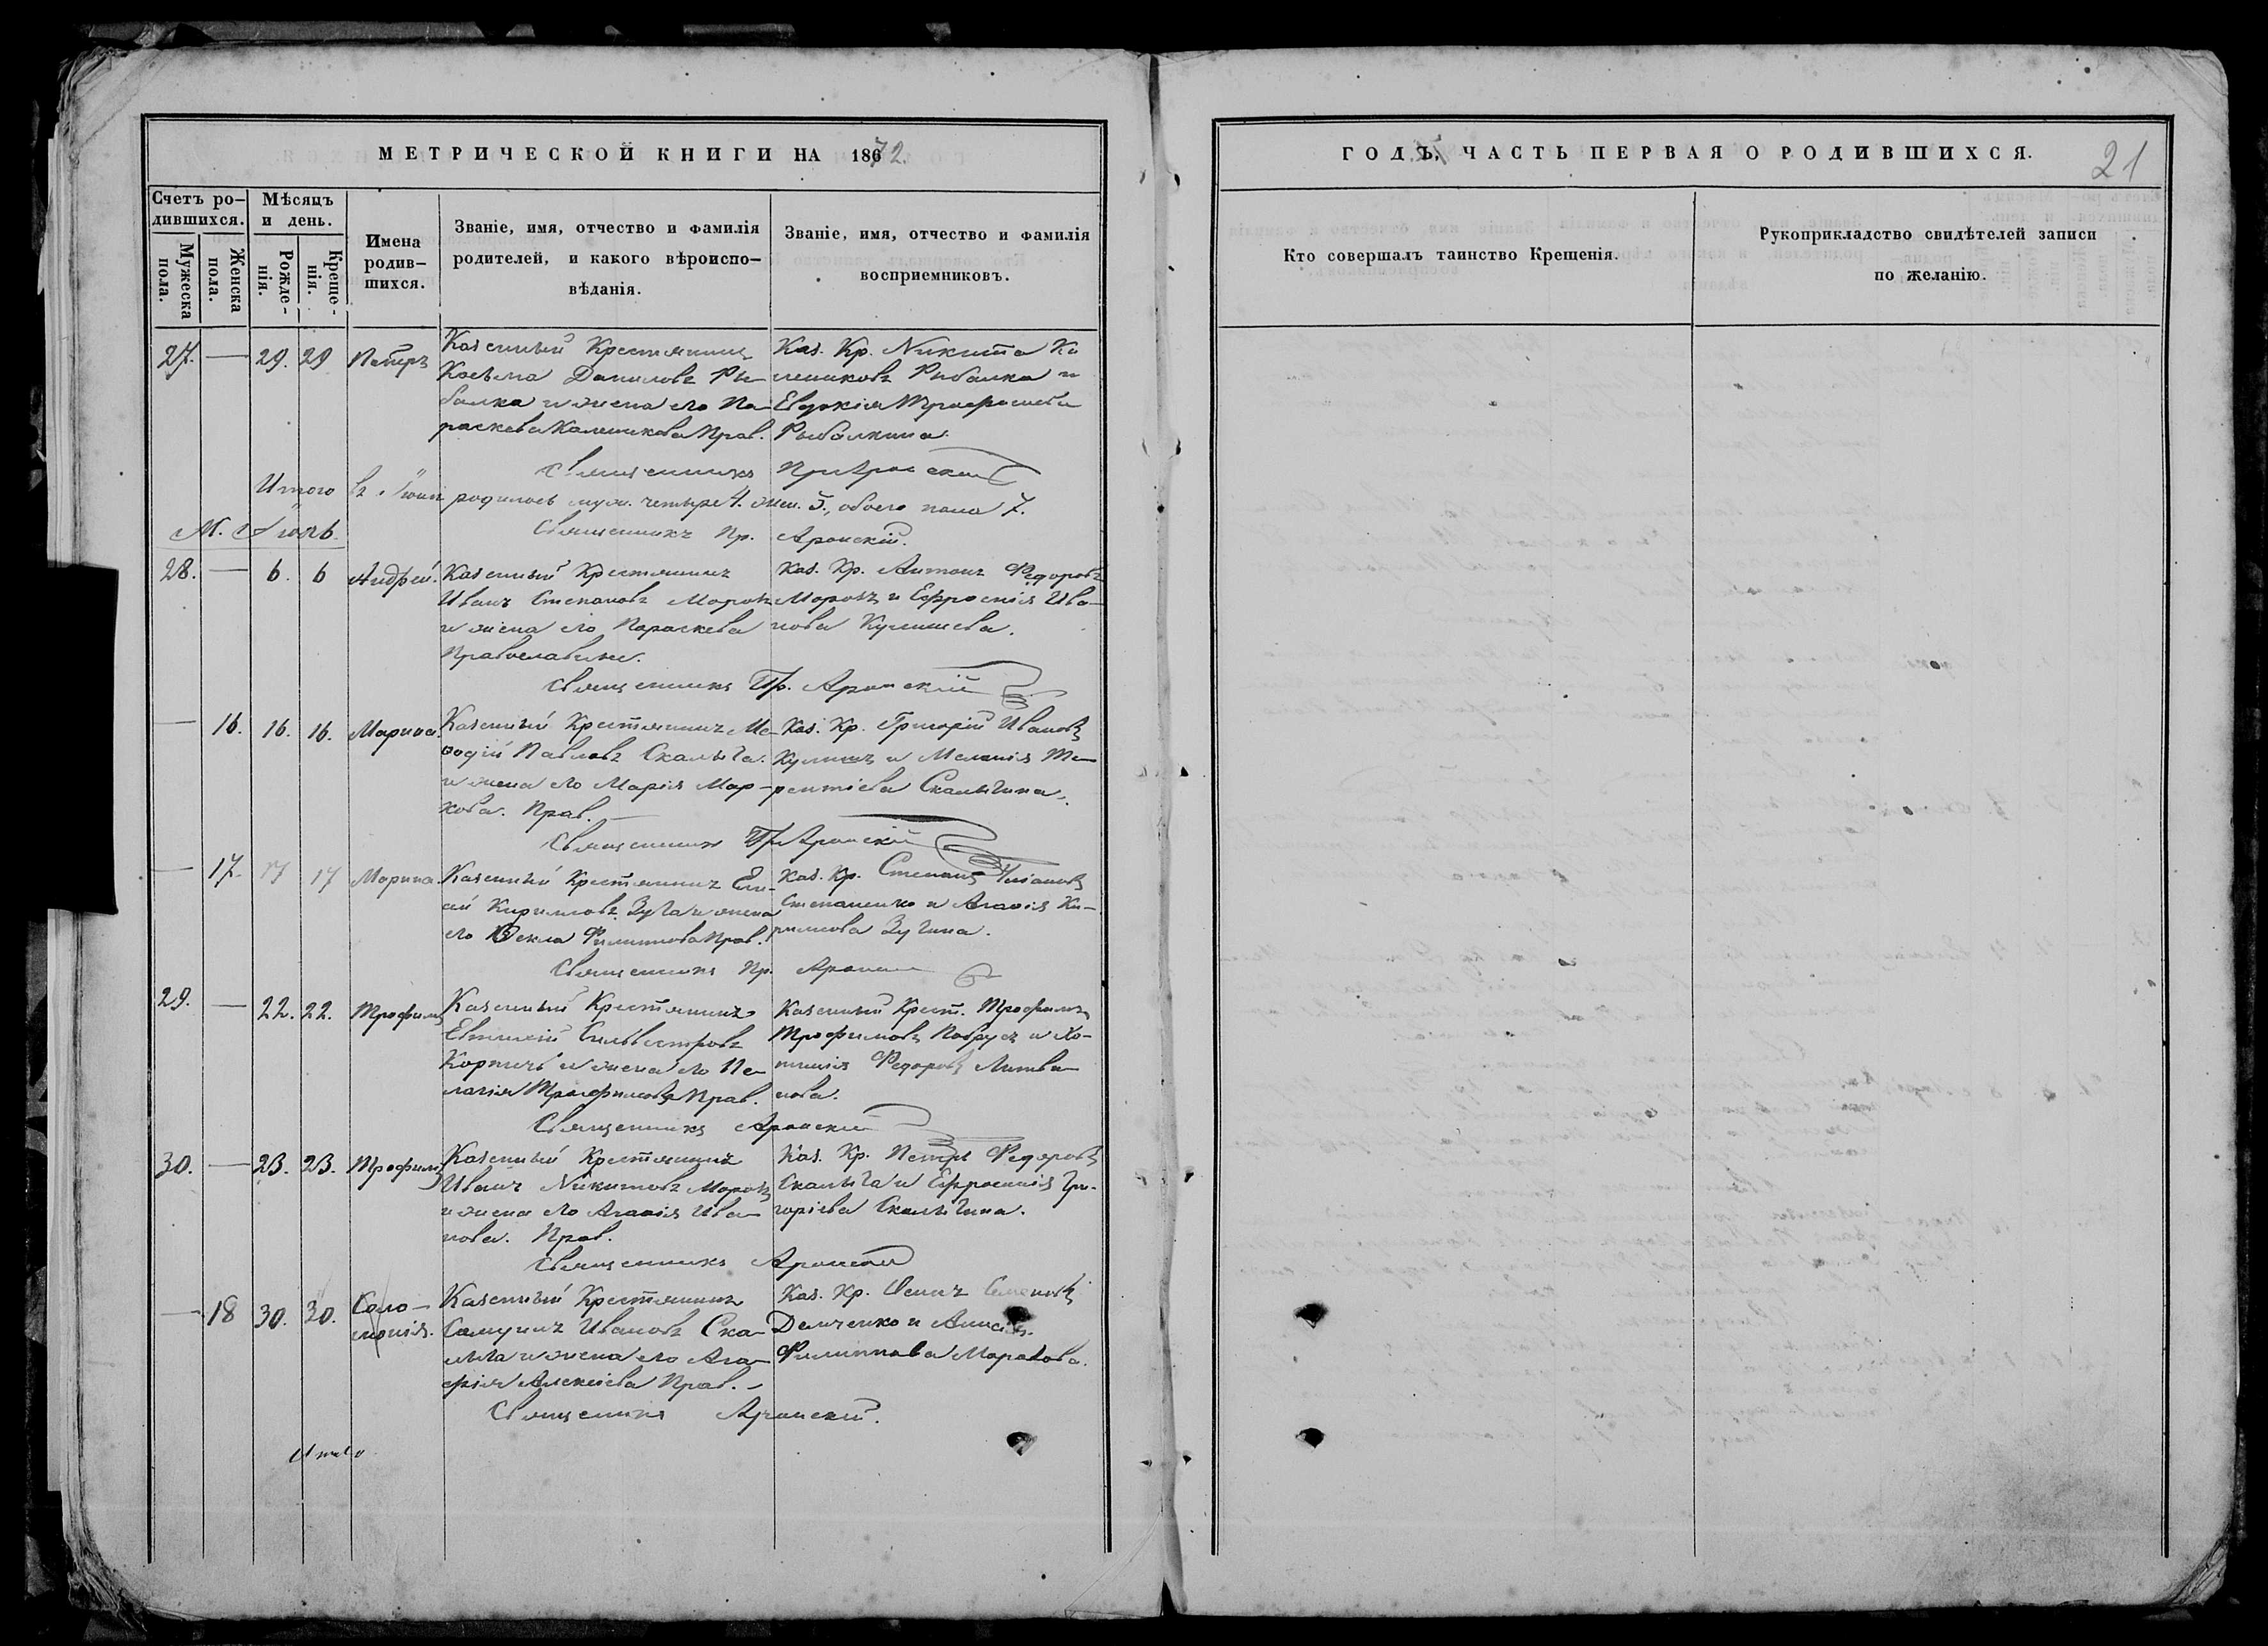 МЕТРИЧЕСКОЙ КНИГИ НА 1872.
Счетъ ро-
дившихся.
Мужеска пола.
Женска пола.
Мѣсяцъ и день.
Рожде-
нія.
Креще-
нія.
Имена
родив-
шихся.
Званіе, имя, отчество и фамилія
родителей, и какого вѣроиспо-
вѣданія.
Званіе, имя, отчество и фамилія
восприемниковъ.
27. — 29. 29 Петръ
Казенный Крестянинъ
Косьма Даниловъ Ры-
балка и жена его Па-
раскева Калиникова Прав.
Каз. Кр. Никита Ка
лениковъ Рыбалка и
Евдокія Трофимова
Рыбалкина.
Священникъ Пр Аронскій
Итого въ Іюнѣ родилось муж. четыре 4. жен. 3., обоего пола 7.
Священникъ Пр. Аронскій.
М. Іюль.
28. — 6. 6 Андрей.
Казенный Крестянинъ
Иванъ Степановъ Морозъ
и жена его Параскева
Православные.
Каз. Кр. Антонъ Федоровъ
Морозъ и Ефросинія Ива-
нова Кулишева.
Священникъ Пр. Аронскій
— 16. 16. 16. Марина.
Казенный Крестянинъ Ме-
ѳодій Павловъ Скалыга.
и жена его Марія Мар-
кова. Прав. —
Каз. Кр. Григорій Ивановъ
Кулишъ и Меланія Те-
рентіева Скалыгина.
Священникъ Пр Аронскій
— 17. 17 17 Марина.
Казенный Крестянинъ Ели-
сей Кириловъ Зуга и жена
его Ѳекла Филипова Прав.
Каз. Кр. Степанъ
Степаненко и Агаѳія Ки-
рилова Зугина.
Священникъ Пр. Аронскій
29. — 22. 22. Трофимъ
Казенный Крестянинъ
Евтихій Сильвестровъ
Корничъ и жена его Пе-
лагія Трофимова Прав.
Казенный Крест. Трофимъ
Трофимовъ Повруз и Хо-
тинія Федоровъ Литви-
нова.
Священникъ Аронскій
30. — 23. 23. Трофимъ
Казенный Крестянинъ
Иванъ Никитовъ Морозъ
и жена его Агаѳія Ива-
нова. Прав.
Каз. Кр. Петръ Федоровъ
Скалыга и Ефросинія Гри-
горіева Скалыгина.
Священникъ Аронскій
— 18 30. 30. Соло-
монія.
Казенный Крестянинъ
Самуилъ Ивановъ Ска-
лыга и жена его Ага-
фія Алексіева Прав. —
Каз. Кр. Семеновъ
Демченко и Анисія
Филиппова Морозова.
Священникъ Аронскій.
Итого
ГОДЪ, ЧАСТЬ ПЕРВАЯ О РОДИВШИХСЯ.
21
Кто совершалъ таинство Крещенія.
Рукоприкладство свидѣтелей записи
по желанію.